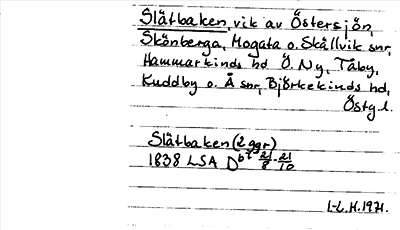 Slätbaken, vik av Östersjön,
Skönberga, Mogata o. Skällvik snr,
Hammarkinds hd Ö. Ny, Tåby,
Kuddby o. Å snr, Björkekinds hd,
Östg l.
Slätbaken (2 ggr)
1838 LSA D 6:2 21/8 - 21/10
L.H. 1971.